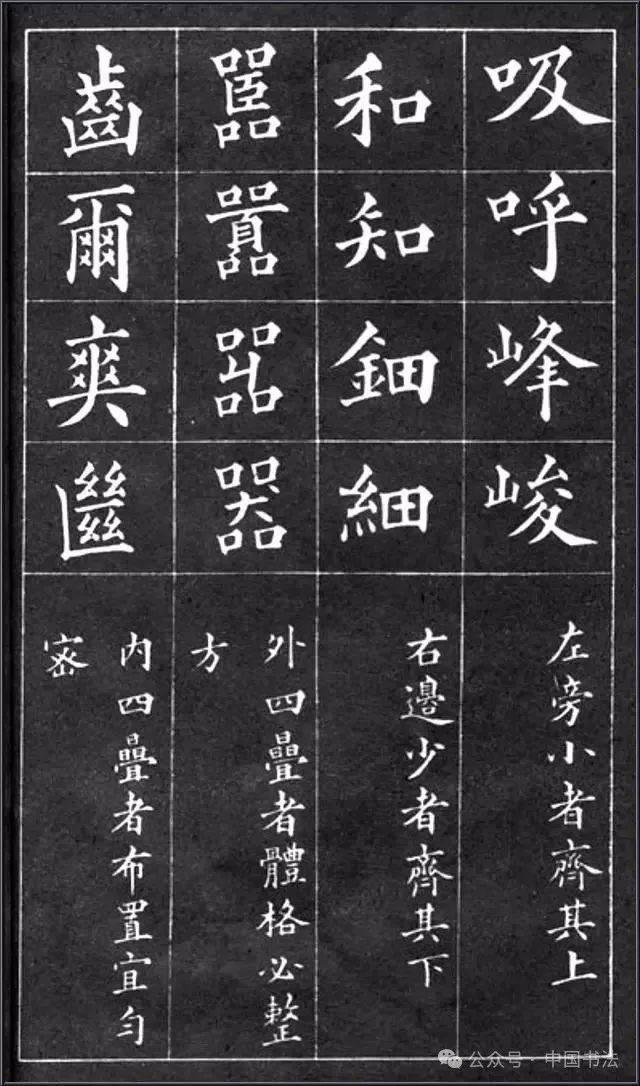 吸呼峰峻
左旁小者齊其上
和知鈿細
右邊少者齊其下
嚚囂嘂器
外四疊者體格必整
方
齒爾爽㡭
內四疊者布置宜勻
密
公众号·中国书法